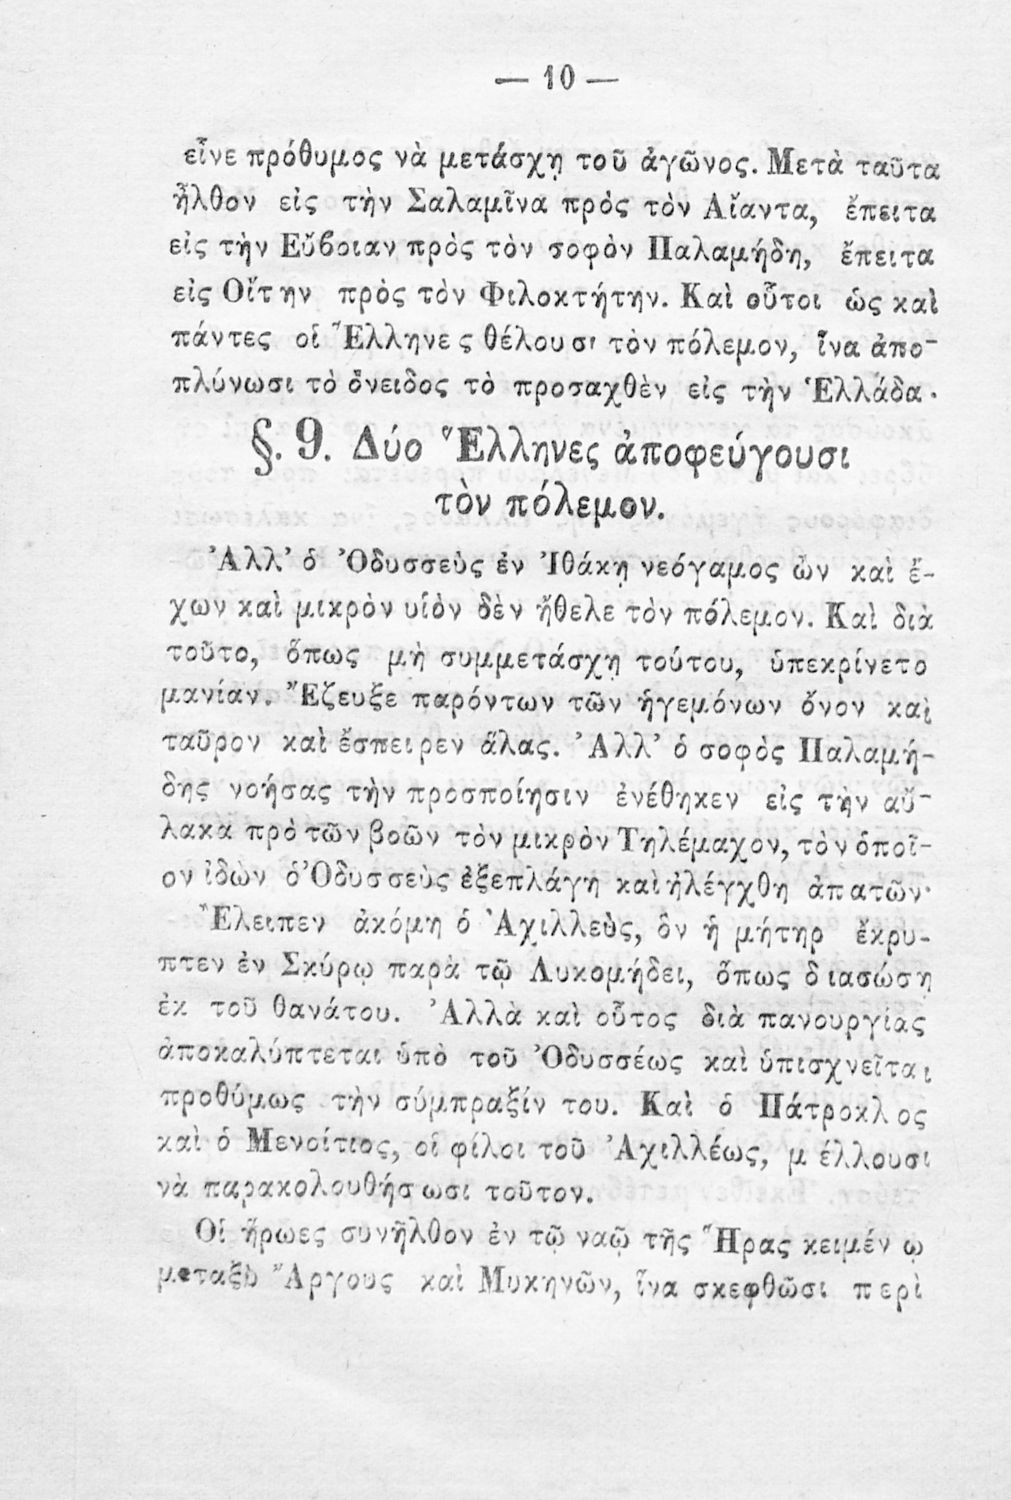 — 10 —
εἶνε πρόθυμος νὰ μετάσχῃ τοῦ ἀγῶνος. Μετὰ ταῦτα
ἦλθον εἰς τὴν Σαλαμῖνα πρὸς τὸν Αἴαντα, ἔπειτα
εἰς τὴν Εὔβοιαν πρὸς τὸν σοφὸν Παλαμήδη, ἔπειτα
εἰς Οἴτην πρὸς τὸν Φιλοκτήτην. Καὶ οὗτοι ὡς καὶ
πάντες οἱ Ἕλληνες θέλουσι τὸν πόλεμον, ἵνα ἀπο-
πλύνωσι τὸ ὄνειδος τὸ προσαχθὲν εἰς τὴν Ἑλλάδα.
§. 9. Δύο Ἕλληνες ἀποφεύγουσι
τὸν πόλεμον.
Ἀλλ' ὁ Ὀδυσσεὺς ἐν Ἰθάκῃ νεόγαμος ὢν καὶ ἔ-
χων καὶ μικρὸν υἱὸν δὲν ἤθελε τὸν πόλεμον. Καὶ διὰ
τοῦτο, ὅπως μὴ συμμετάσχῃ τούτου, ὑπεκρίνετο
μανίαν. Ἔζευξε παρόντων τῶν ἡγεμόνων ὄνον καὶ
ταῦρον καὶ ἔσπειρεν ἅλας. Ἀλλ' ὁ σοφὸς Παλαμή-
δης νοήσας τὴν προσποίησιν ἐνέθηκεν εἰς τὴν αὔ-
λακα πρὸ τῶν βοῶν τὸν μικρὸν Τηλέμαχον, τὸν ὁποῖ-
ον ἰδὼν ὁ Ὀδυσσεὺς ἐξεπλάγη καὶ ἠλέγχθη ἀπατῶν·
Ἔλειπεν ἀκόμη ὁ Ἀχιλλεὺς, ὃν ἡ μήτηρ ἔκρυ-
πτεν ἐν Σκύρῳ παρὰ τῷ Λυκομήδει, ὅπως διασώσῃ
ἐκ τοῦ θανάτου. Ἀλλὰ καὶ οὗτος διὰ πανουργίας
ἀποκαλύπτεται ὑπὸ τοῦ Ὀδυσσέως καὶ ὑπισχνεῖται
προθύμως τὴν σύμπραξίν του. Καὶ ὁ Πάτροκλος
καὶ ὁ Μενοίτιος, οἱ φίλοι τοῦ Ἀχιλλέως, μέλλουσι
νὰ παρακολουθήσωσι τοῦτον.
Οἱ ἥρωες συνῆλθον ἐν τῷ ναῷ τῆς Ἥρας κειμένῳ
μεταξὺ Ἄργους καὶ Μυκηνῶν, ἵνα σκεφθῶσι περὶ